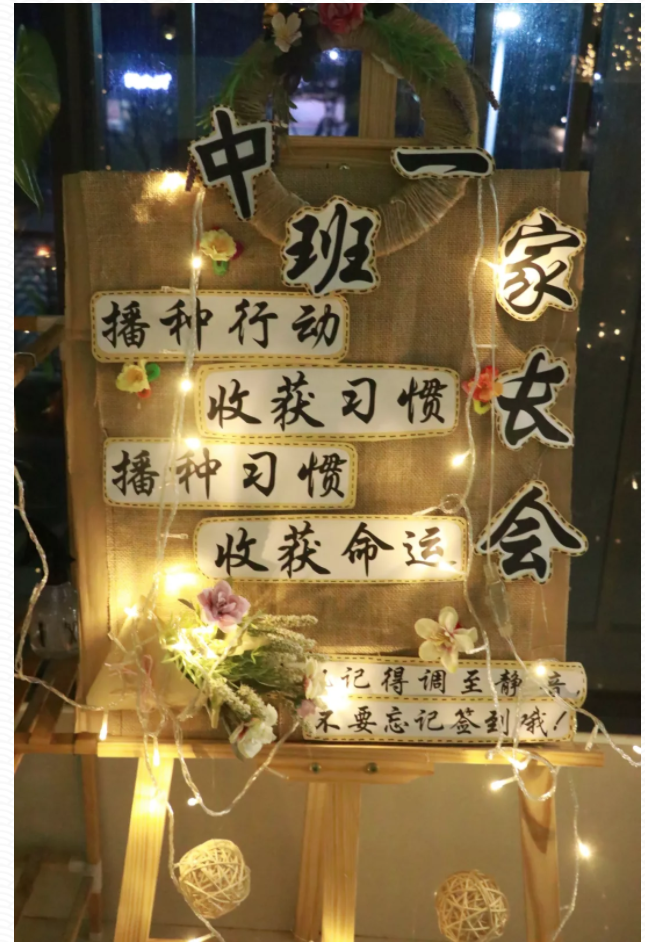 中一班
家长会
播种行动
收获习惯
播种习惯
收获命运
记得调至静音
不要忘记签到哦!